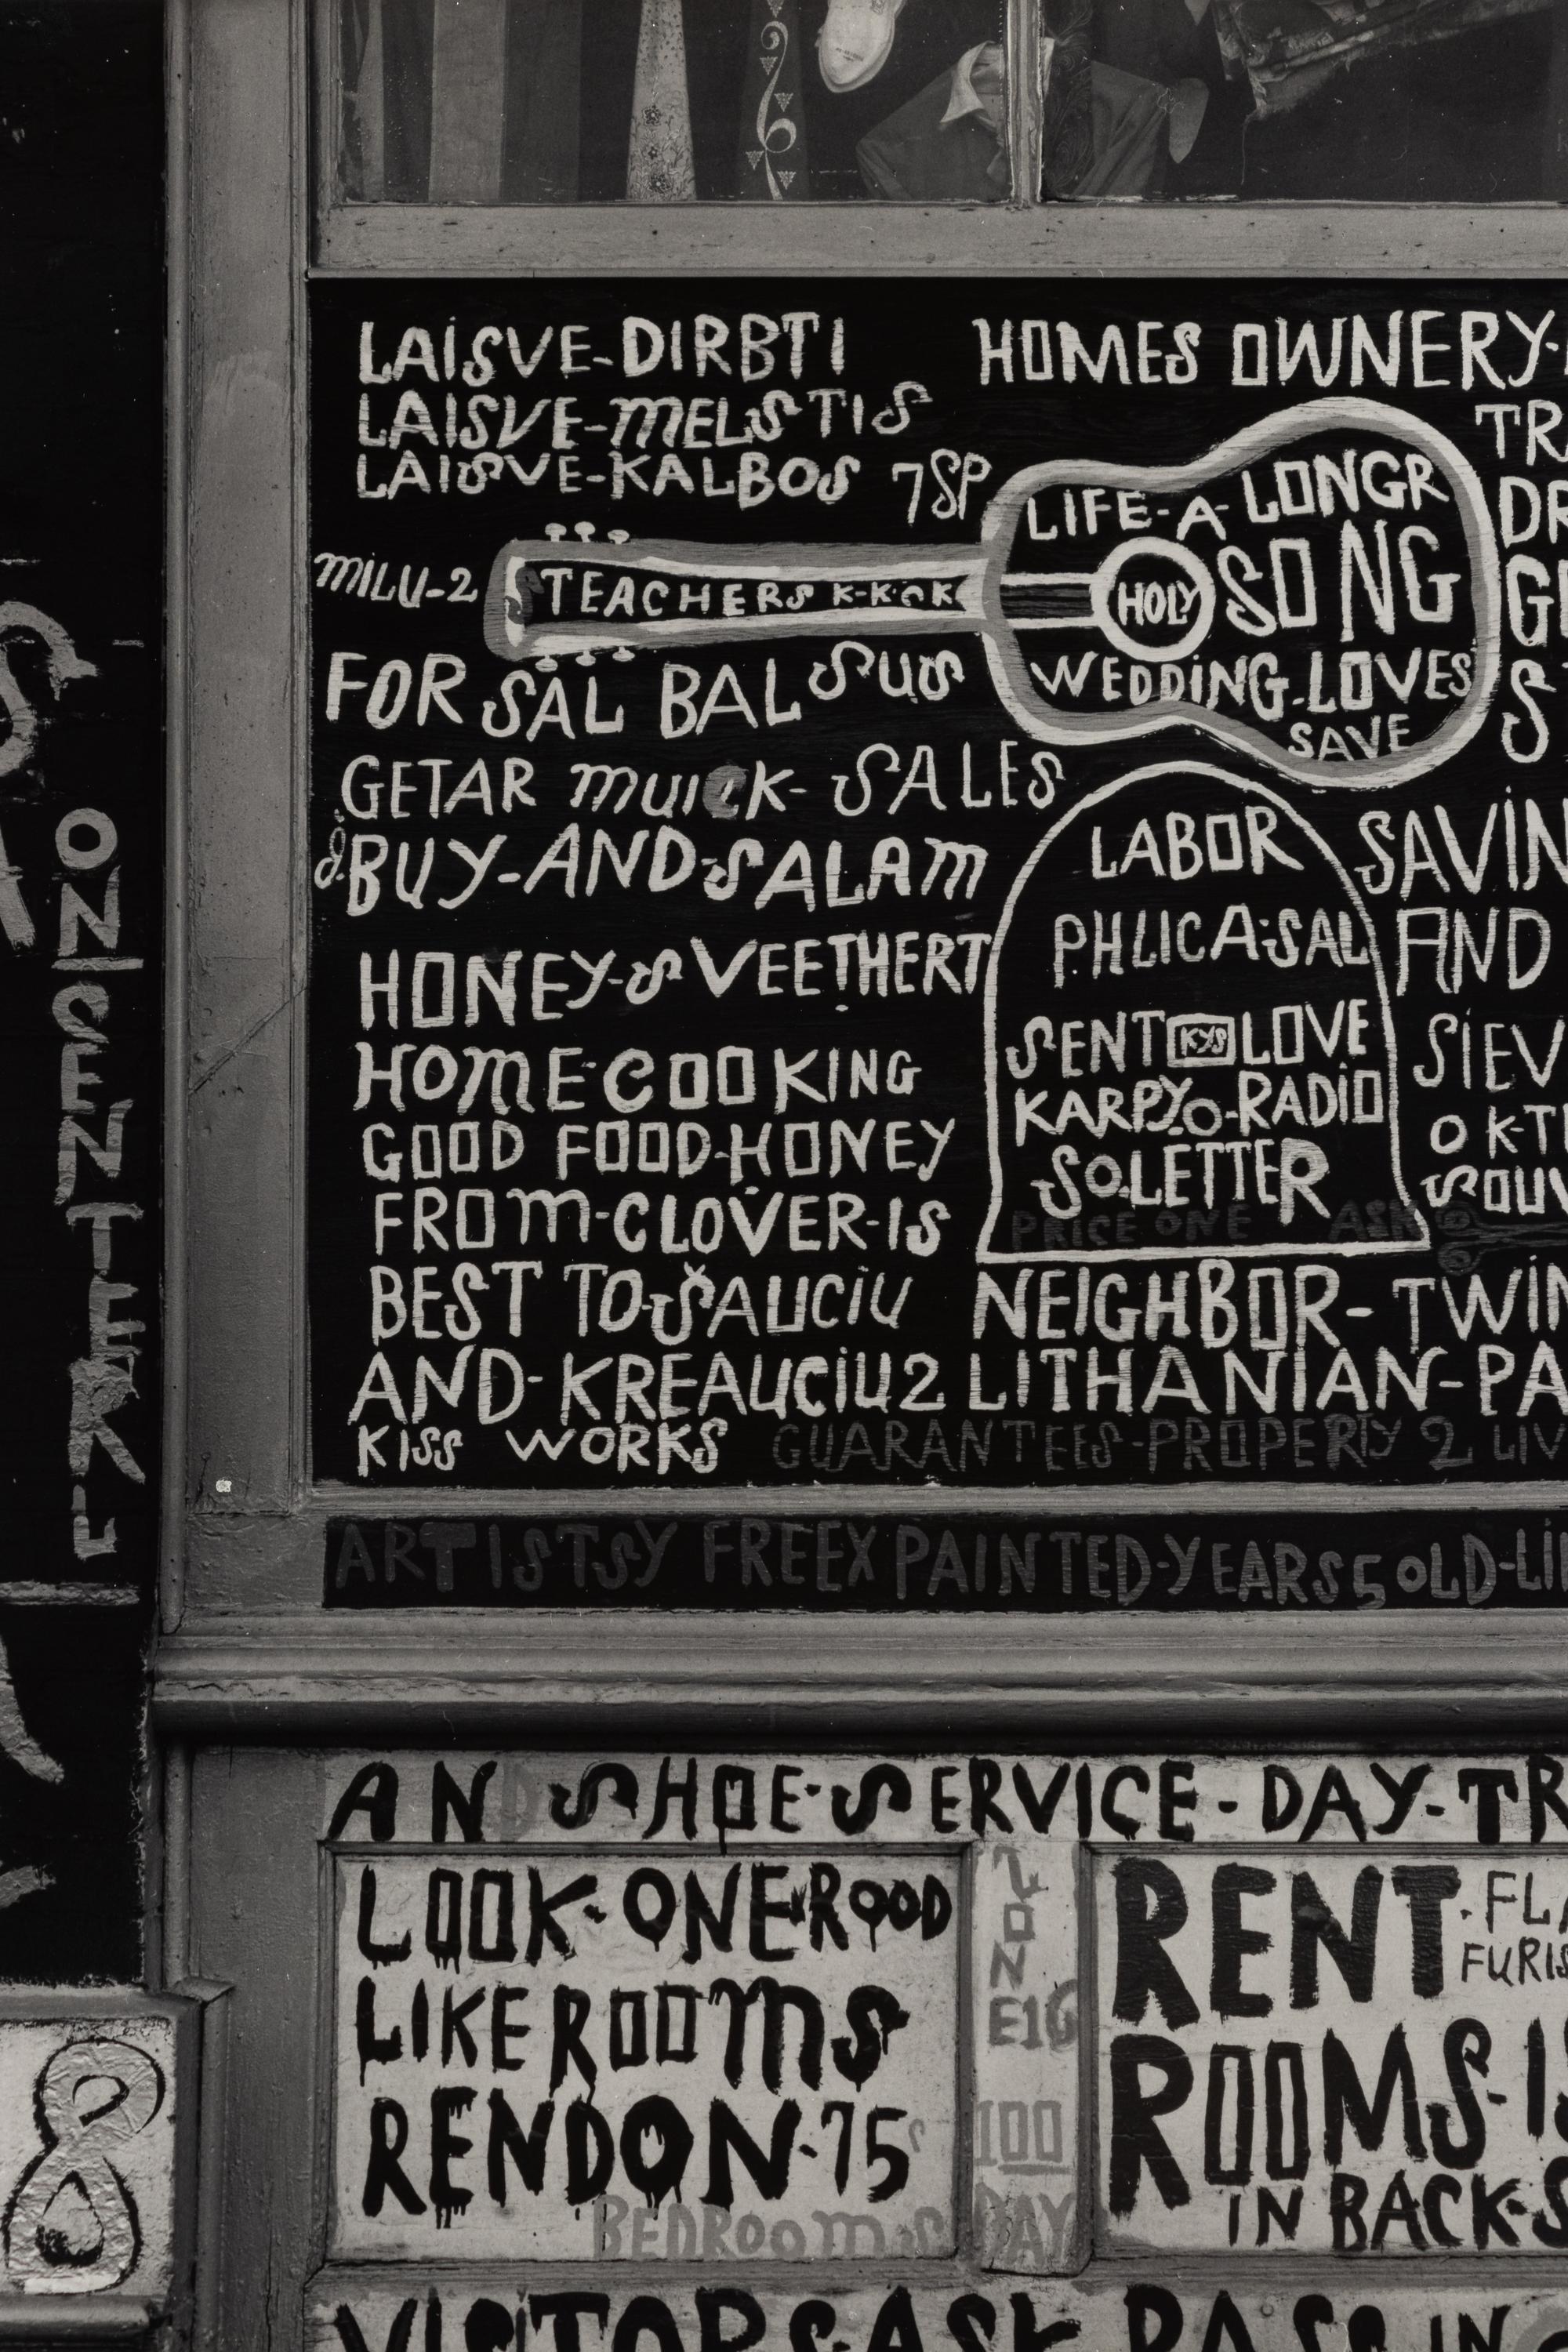 LAISVE-DIRBTI
LAISVE-MELSTIS
LAISVE-KALBOS 7SP
MILU-2
TEACHERS
FOR SAL BALSUS
GETAR MUICK-SALES
& BUY-AND-SALAM
HONEY-SVEETHERT
HOME-COOKING
GOOD FOOD-HONEY
FROM-CLOVER-IS
BEST TO-ŠAUCIU
AND-KREAUCIU2
KISS WORKS
HOMES OWNERY-
LIFE-A-LONGR
HOLY SONG
WEDDING-LOVES
SAVE
LABOR
PHLICA-SAL
SENT KYS LOVE
KARPYO-RADIO
SO.LETTER
PRICE ONE ASK
TRA
DR
G
S
SAVIN
AND
SIEV
OK-T
SOUV
NEIGHBOR-TWIN
LITHANIAN-PA
GUARANTEES-PROPERTY 2 LIV
ARTISTSY FREEX PAINTED-YEARS 5 OLD-LI
ONSENTERU
AND SHOE-SERVICE-DAY-TR
LOOK-ONE ROOD
LIKE ROOMS
RENDON-75
BEDROOMS
ZONE16
100
DAY
RENT.FL
FURIS
ROOMS-IS
IN BACK-S
8
VISTORS ASK